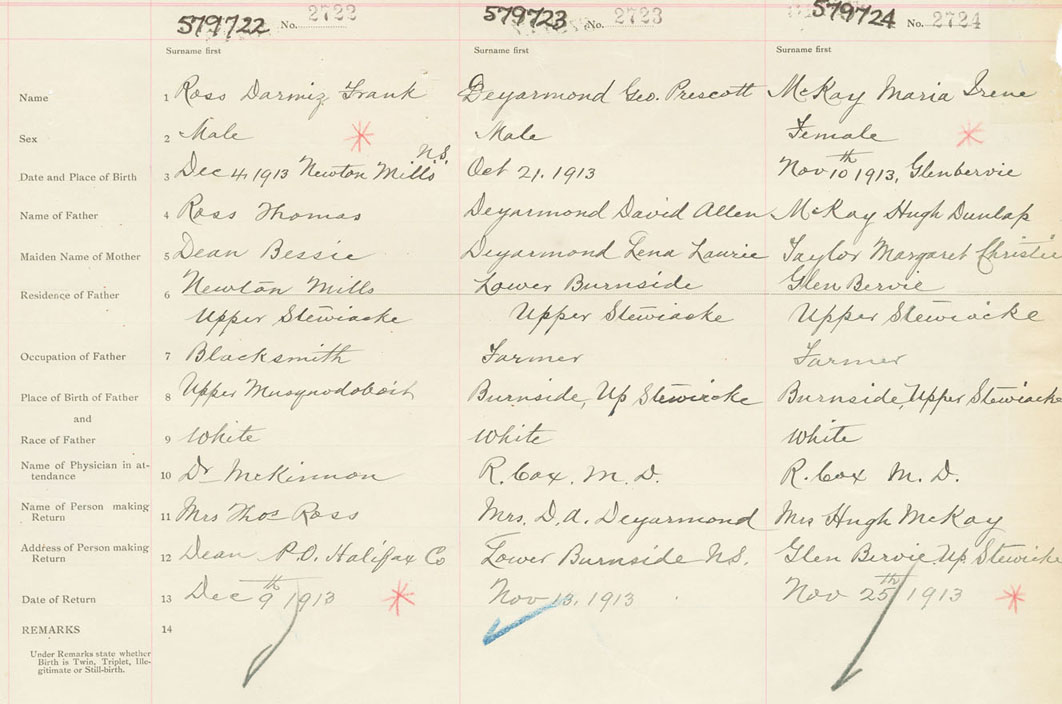 579722 No. 2722 579723 No. 2723 579724 No. 2724
Surname first Surname first Surname first
Name 1 Ross Darmiz Frank Deyarmond Geo. Prescott McKay Maria Irene
Sex 2 Male Male Female
N.S.
Date and Place of Birth 3 Dec 4 1913 Newton Mills Oct 21. 1913 Nov 10th 1913, Glenbervie
Name of Father 4 Ross Thomas Deyarmond David Allen McKay Hugh Dunlap
Maiden Name of Mother 5 Dean Bessie Deyarmond Lena Laurie Taylor Margaret Christie
Residence of Father 6 Newton Mills Lower Burnside Glen Bervie
Upper Stewiacke Upper Stewiacke Upper Stewiacke
Occupation of Father 7 Blacksmith Farmer Farmer
Place of Birth of Father 8 Upper Musquodoboit Burnside, Up Stewicke Burnside, Upper Stewiacke
and
Race of Father 9 White White White
Name of Physician in at-
tendance 10 Dr McKinnon R. Cox. M. D. R. Cox M. D.
Name of Person making
Return 11 Mrs Thos Ross Mrs. D. A. Deyarmond Mrs Hugh McKay
Address of Person making
Return 12 Dean P.O. Halifax Co Lower Burnside N.S. Glen Bervie Up Stewicke
Date of Return 13 Dec 9th 1913 Nov 13, 1913 Nov 25th 1913
REMARKS 14
Under Remarks state whether
Birth is Twin, Triplet, Ille-
gitimate or Still-birth.